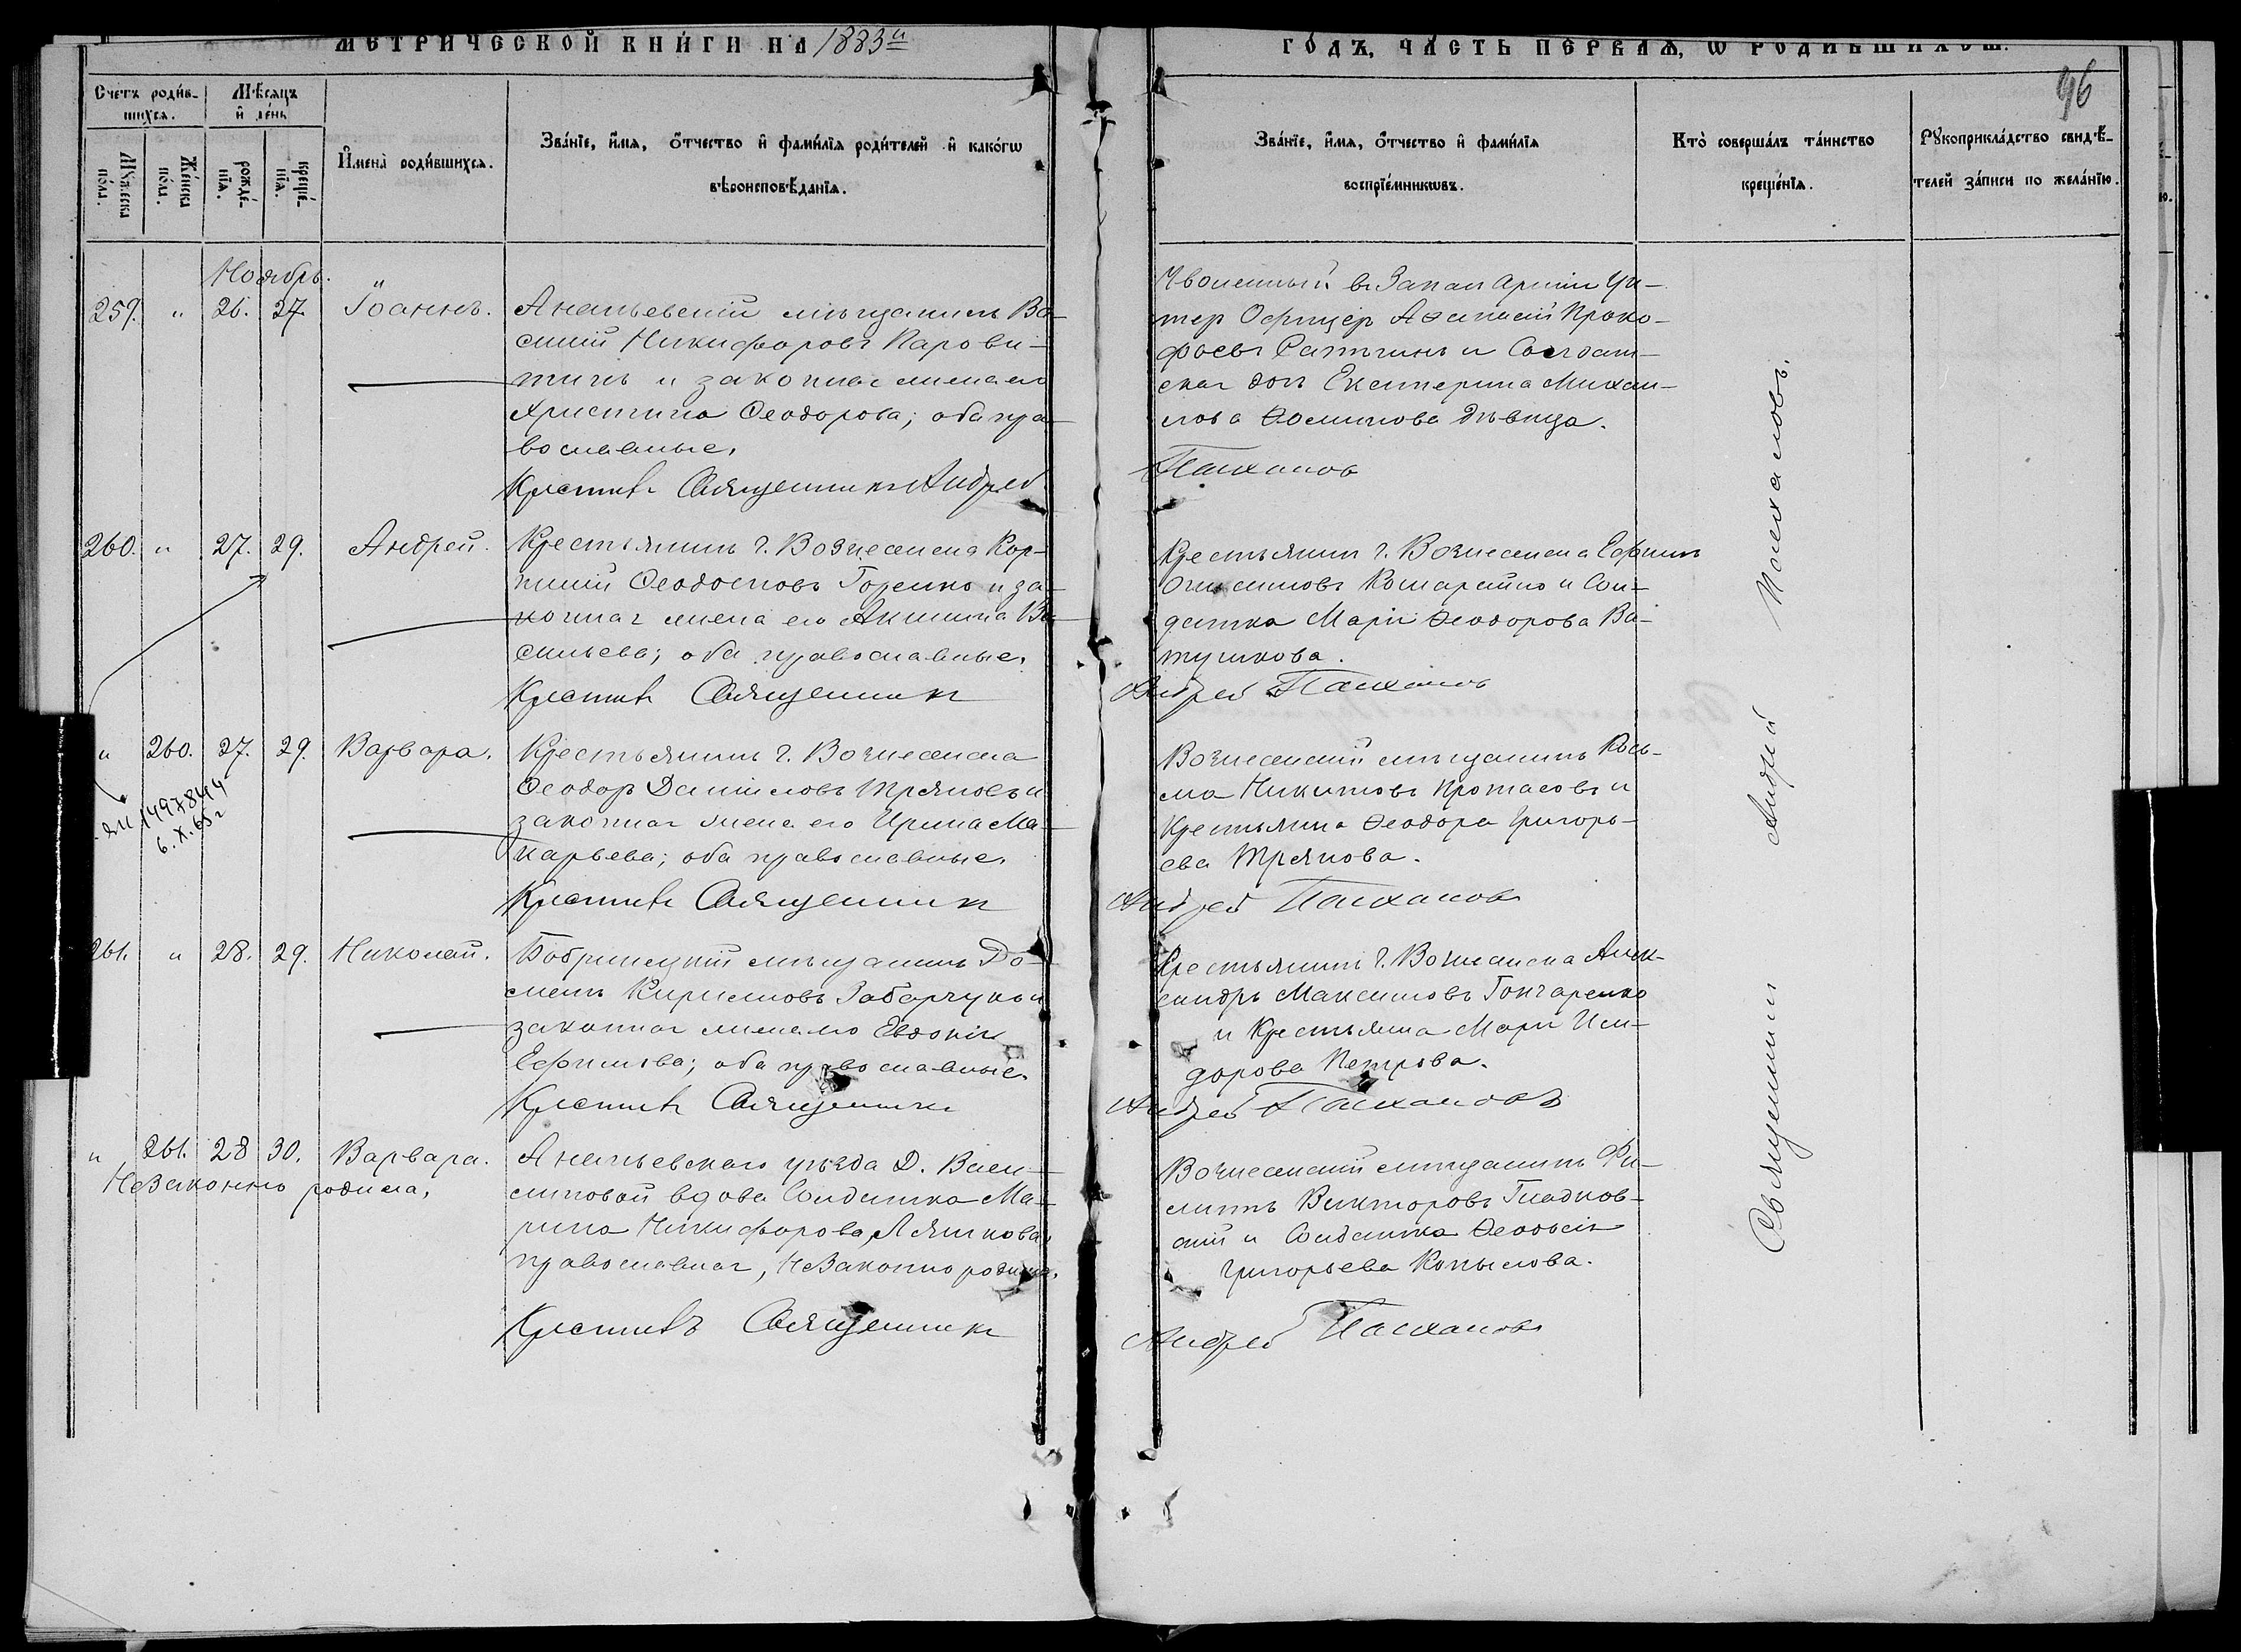 МЕТРИЧЕСКОЙ КНИГИ НА 1883й
ГОДЪ, ЧАСТЬ ПЕРВАЯ, Ѡ РОДИВШИХСЯ.
96
Счетъ родив-
шихся.
Мѣсяцъ
и день
Мужеска
пола.
Женска
пола.
рожде-
нія.
креще-
нія.
Имена родившихся.
Званіе, имя, отчество и фамилія родителей и какогѡ
вѣроисповѣданія.
Званіе, имя, отчество и фамилія
воспріемниковъ.
Кто совершалъ таинство
крещенія.
Рукоприкладство свидѣ-
телей записи по желанію.
Ноябрь.
259. " 26. 27. Іоаннъ.
Ананьевскій мѣщанинъ Ва-
силій Никифоровъ Карови-
тинъ и законная жена его
Христина Ѳеодорова; оба пра-
вославные.
Крестилъ Священникъ Андрей
Уволенный въ Запасъ Арміи Ун-
теръ Офицеръ Аѳанасій Проко-
фьевъ и Солдат-
ская дочь Екатерина Михаи-
лова Ѳоминова дѣвица.
Палхановъ
260. " 27. 29. Андрей.
Крестьянинъ г. Вознесенска Кор-
нилій Ѳеодосіевъ Горенко и за-
конная жена его Акилина Ва-
сильева; оба православные.
Крестилъ Священникъ
Крестьянинъ г. Вознесенска Ефимъ
Онисимовъ и Сол-
датка Марія Ѳеодорова Ва-
тушкова.
Андрей Палхановъ
" 260. 27. 29. Варвара.
Крестьянинъ г. Вознесенска
Ѳеодоръ Даніиловъ Тряповъ и
законная жена его Ирина Ма-
карьева; оба православные.
Крестилъ Священникъ
Вознесенскій мѣщанинъ Кось-
ма Никитовъ Протасовъ и
Крестьянка Ѳеодора Григорь-
ева Тряпова.
Андрей Палхановъ
1497844
6.X.65г
261. " 28. 29. Николай.
Бобринецкій мѣщанинъ До-
Кирилловъ Забарчукъ и
законная жена его Евдокія
Ефимова; оба православные.
Крестилъ Священникъ
Крестьянинъ г. Вознесенска Алек-
сандръ Максимовъ Гончаренко
и Крестьянка Марія Иси-
дорова Петрова.
Андрей Палхановъ
" 261. 28 30. Варвара.
Незаконно родила.
Ананьевскаго уѣзда Д. Васи-
линовой вдова Солдатка Ма-
рина Никифорова Ляшкова,
православная, Незаконно родила.
Крестилъ Священникъ
Вознесенскій мѣщанинъ Фи-
липпъ Викторовъ Гладков-
скій и Солдатка Ѳеодосія
Григорьева Копылова.
Андрей Палхановъ
Священникъ Андрей Палхановъ.